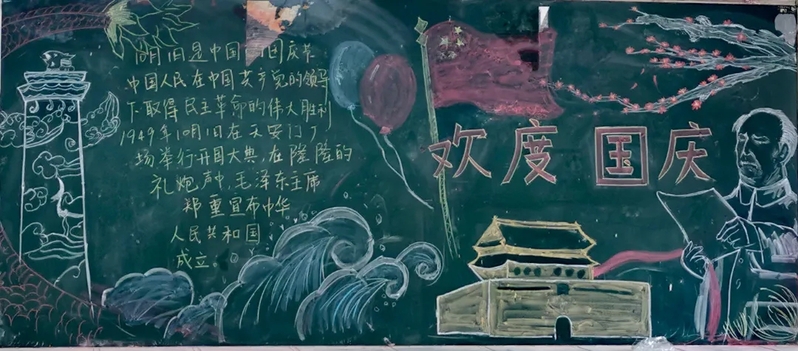 10月1日是中国的国庆节
中国人民在中国共产党的领导
下取得民主革命的伟大胜利
1949年10月1日在天安门广
场举行开国大典,在隆隆的
礼炮声中,毛泽东主席
郑重宣布中华
人民共和国
成立。
欢度国庆